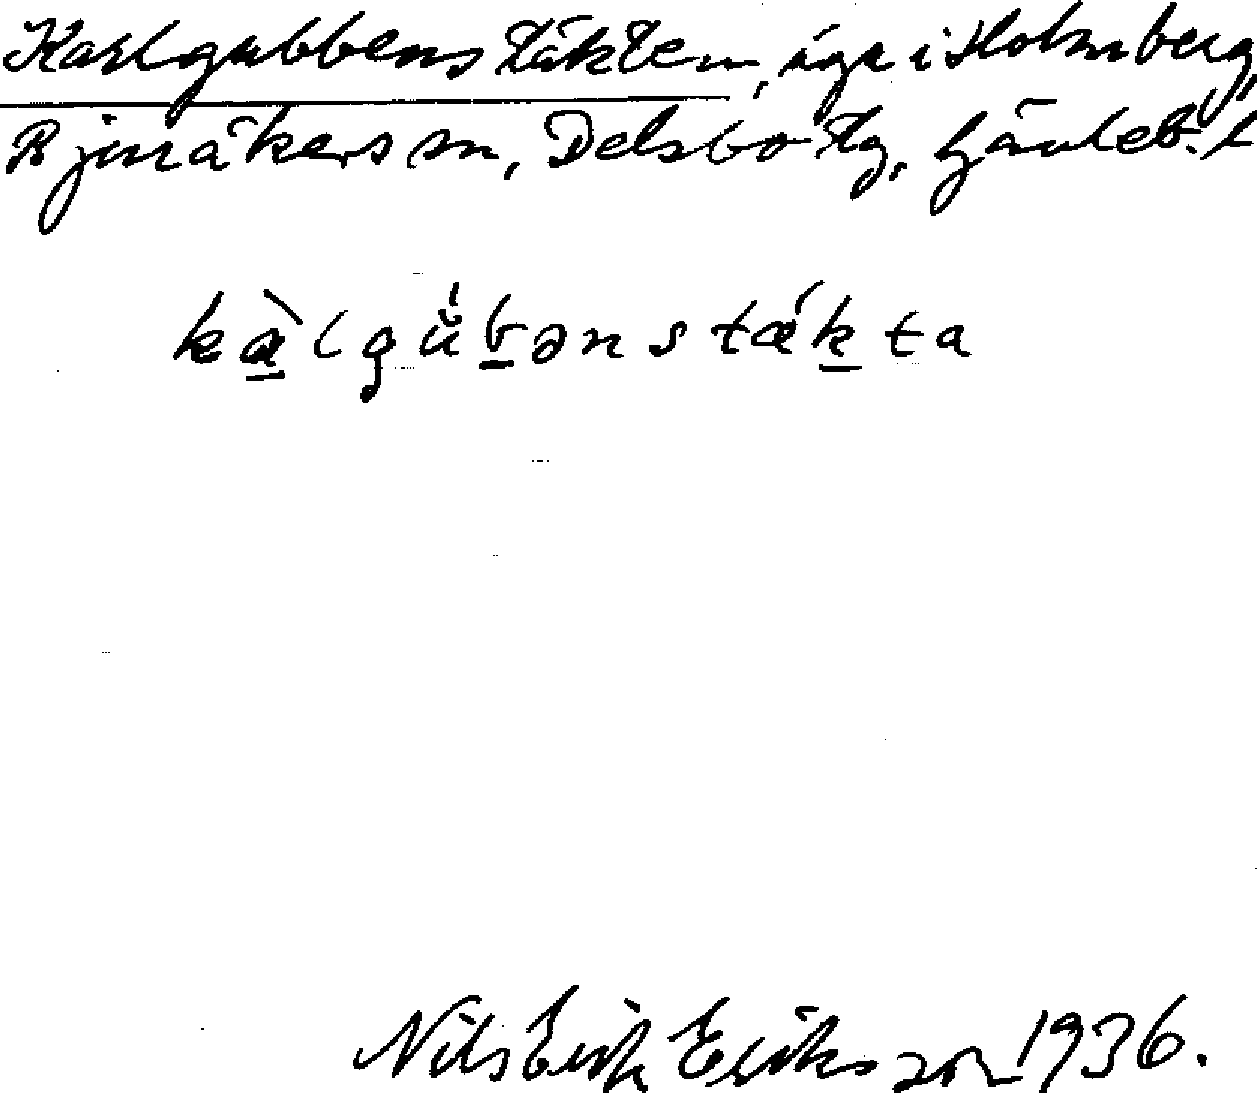 Karlgubbenstäkten, äga i Holmberg,
Bjuråkers sn, Delsbo tg, Gävleb. l
kàlgŭbənstækta
Nils Erik Eriksson 1936.